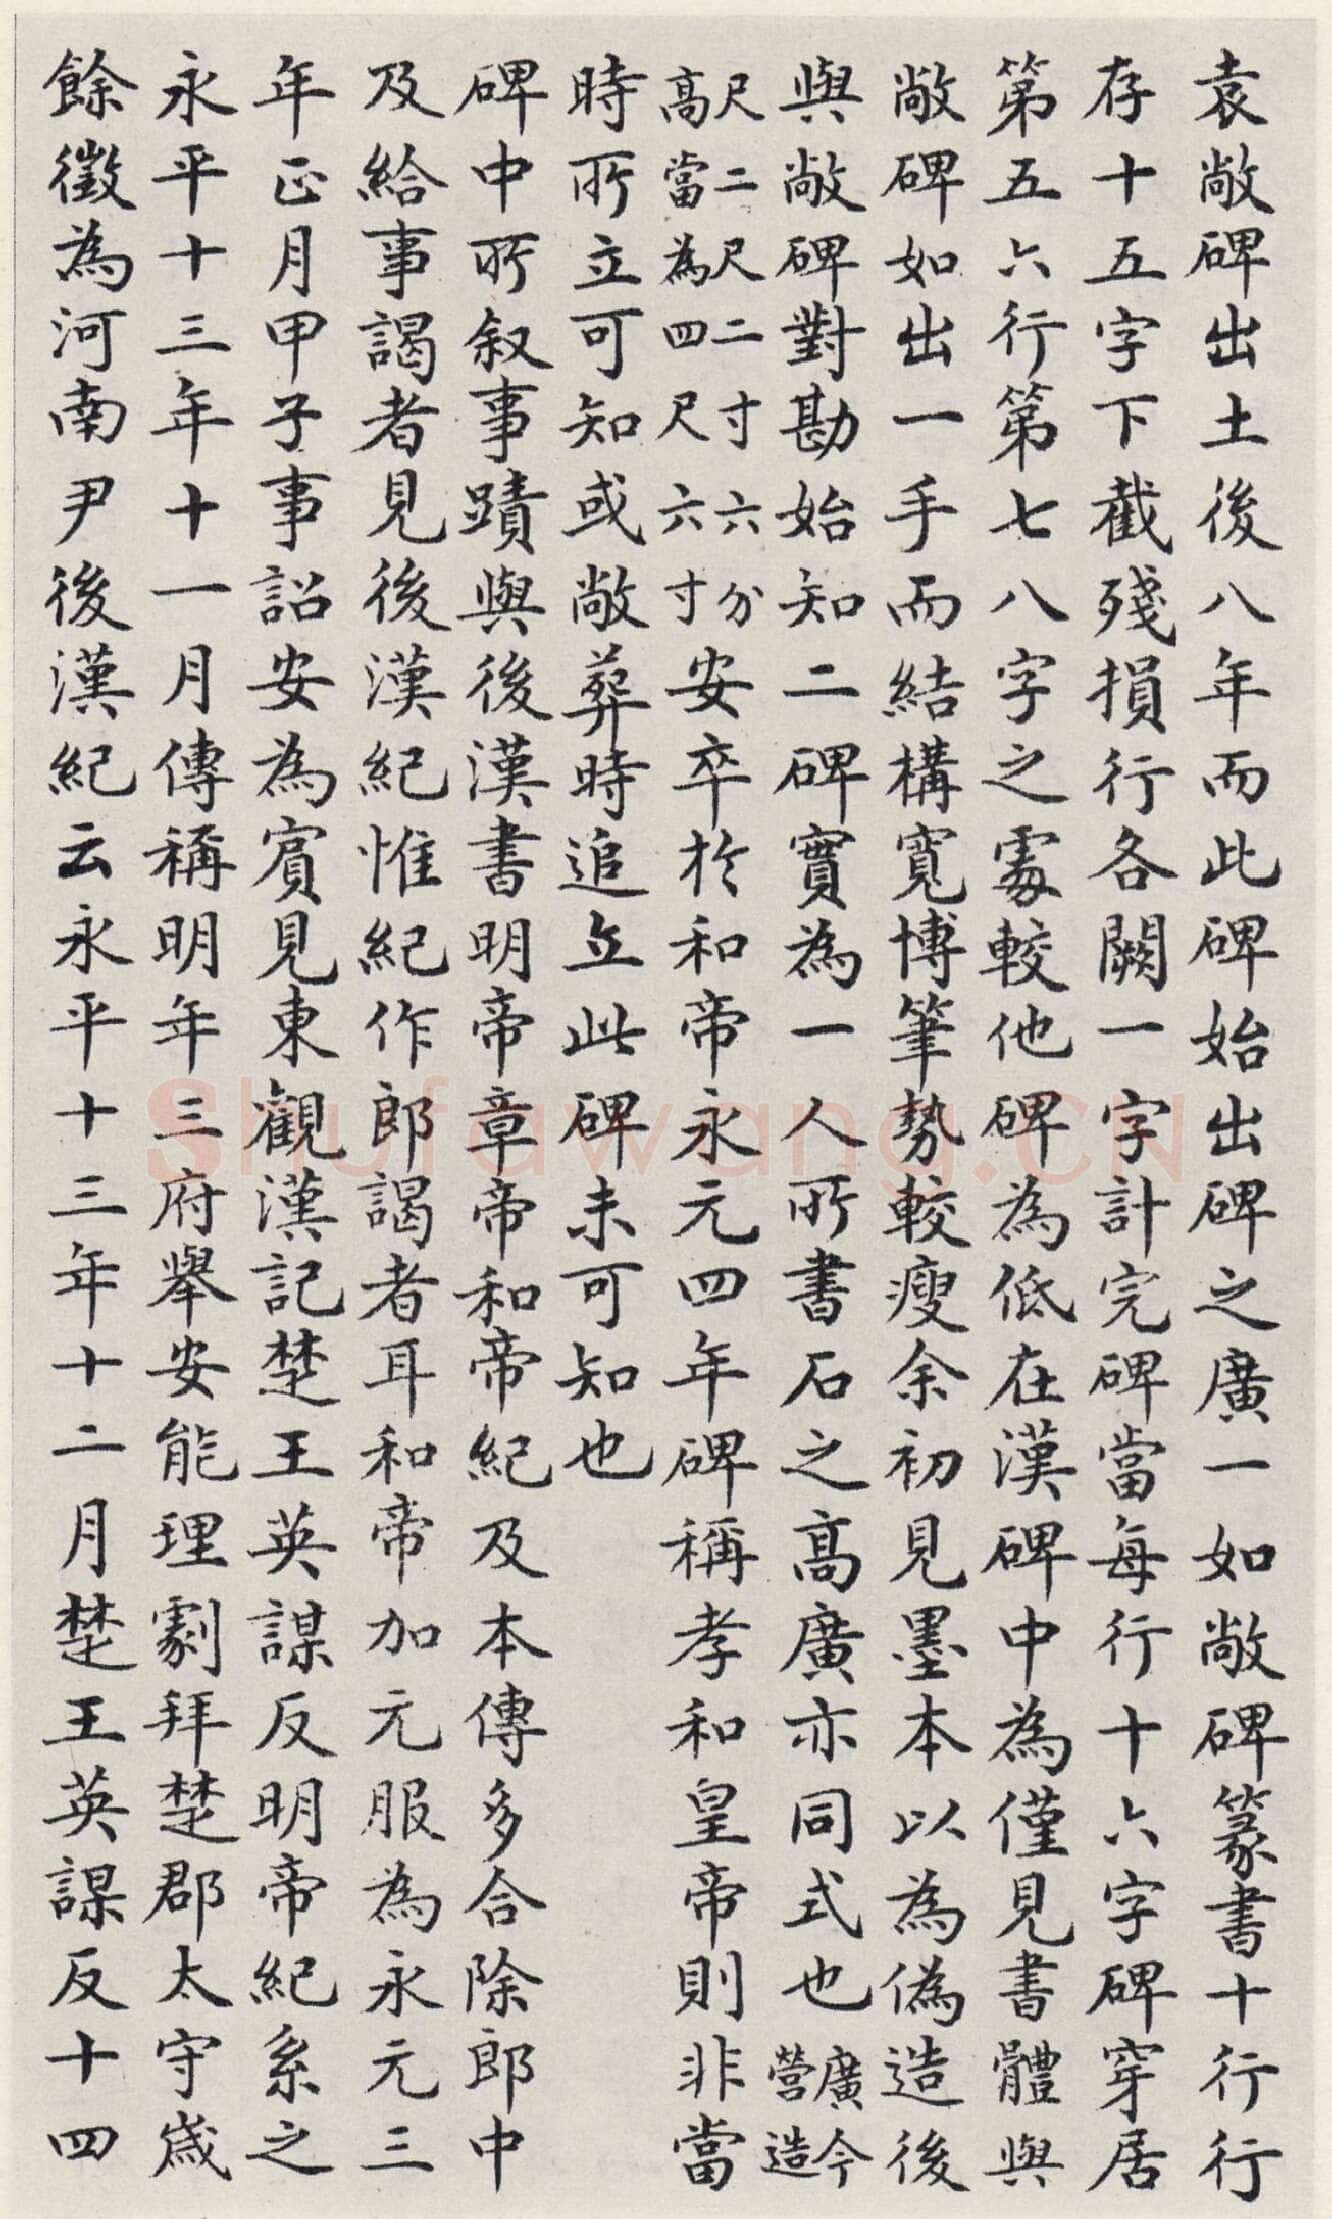 袁敞碑出土後八年而此碑始出碑之廣一如敞碑篆書十行行
存十五字下截殘損行各闕一字計完碑當每行十六字碑穿居
第五六行第七八字之處較他碑為低在漢碑中為僅見書體與
敞碑如出一手而結構寬博筆勢較瘦余初見墨本以為偽造後
與敞碑對勘始知二碑實為一人所書石之高廣亦同式也廣今營造
尺二尺二寸六分高當為四尺六寸安卒於和帝永元四年碑稱孝和皇帝則非當
時所立可知或敞葬時追立此碑未可知也
碑中所叙事蹟與後漢書明帝章帝和帝紀及本傳多合除郎中
及給事謁者見後漢紀惟紀作郎謁者耳和帝加元服為永元三
年正月甲子事詔安為賓見東觀漢記楚王英謀反明帝紀系之
永平十三年十一月傳稱明年三府舉安能理劇拜楚郡太守歲
餘徵為河南尹後漢紀云永平十三年十二月楚王英謀反十四
shufawang.cn